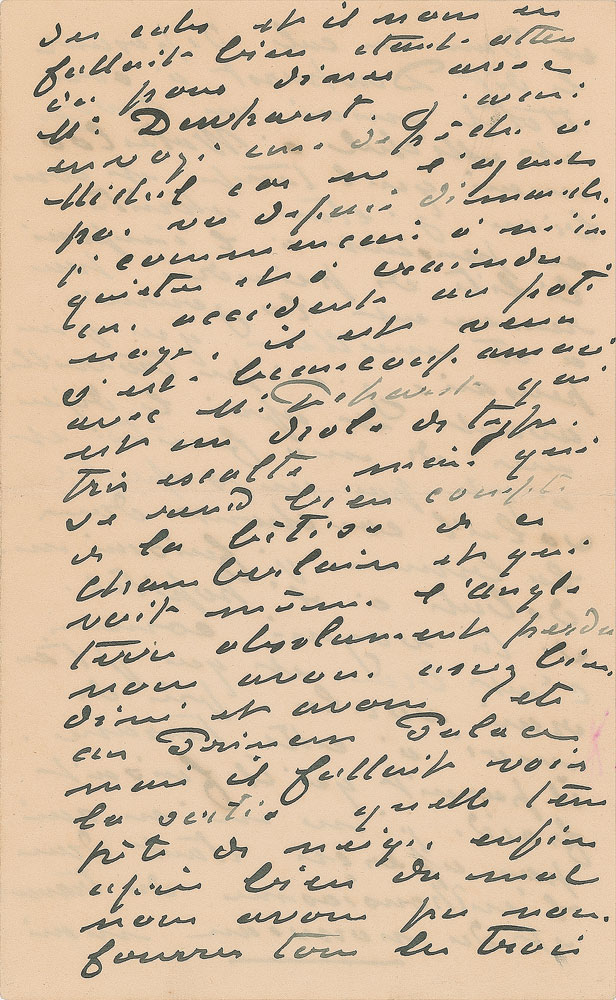 des cabs et il nous en
fallait bien étant atten
du pour diner avec
M. Davpaerst. J'avais
envoyé une dépêche à
Michel car ne l'ayant
pas vu depuis dimanche
je commencais à m'in
quieter et à craindre
un accident au poti
nage. il est venu
s'est beaucoup amusé
avec M. qui
est un drole de type
très exalté mais qui
se rend bien compte
de la bêtise de ce
Chamberlain et qui
voit même l'Angle
terre absolument perdue
nous avons assez bien
diné et avons été
au Princess Palace
mais il fallait voir
la sortie quelle tem
pête de neige. enfin
après bien du mal
nous avons pu nous
fourrer tous les trois